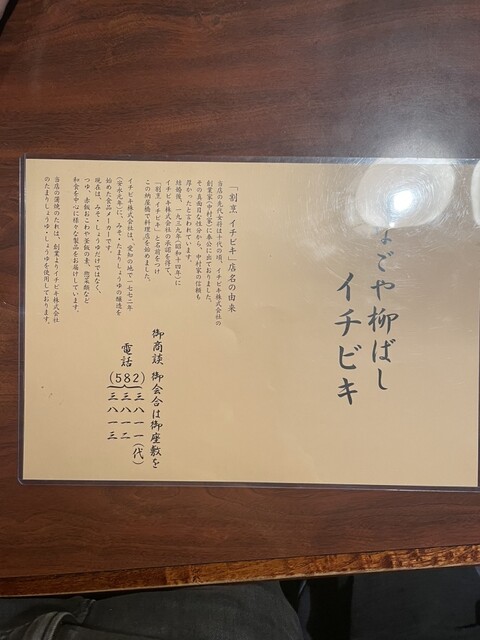 なごや柳ばし
イチビキ
「割烹 イチビキ」店名の由来
当店の先代女将は十代の頃、イチビキ株式会社の
創業家(中村家)に奉公に出ておりました。
その真面目な性分から、中村家の信頼も
厚かったと言われています。
結婚後、一九三九年(昭和十四年)に
イチビキ株式会社の承諾を得て、
「割烹 イチビキ」と名前をつけ
この納屋橋で料理店を始めました。
イチビキ株式会社は、愛知の地で一七七二年
(安永元年)に、みそ・たまりしょうゆの醸造を
始めた食品メーカーです。
現在は、みそ・しょうゆだけではなく、
つゆ、赤飯おこわや釜飯の素、惣菜類など
和食を中心に様々な製品をお届けしています。
当店の蒲焼のたれは、創業よりイチビキ株式会社
のたまりしょうゆ・しょうゆを使用しております。
御商談 御会合は御座敷を
電話 (582) 三八一一(代)
三八一二
三八一三